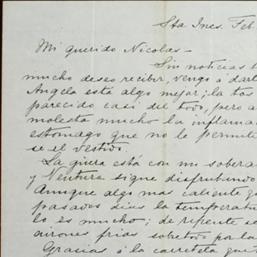 Sta Ines. Feb
Mi querido Nicolas -
Sin noticias
mucho deseo recibir, vengo á dart
Angela está algo mejor; la tos
parecido casi del todo, pero a
molesta mucho la inflama
estómago que no le permite
se el vestido.
La güera está con mi sobera
y Ventura sigue disfrutando
Aunque algo mas caliente q
pasados dias la temperatu
lo es mucho; de repente s
airones frios sobretodo por la
Gracias á la carretela que